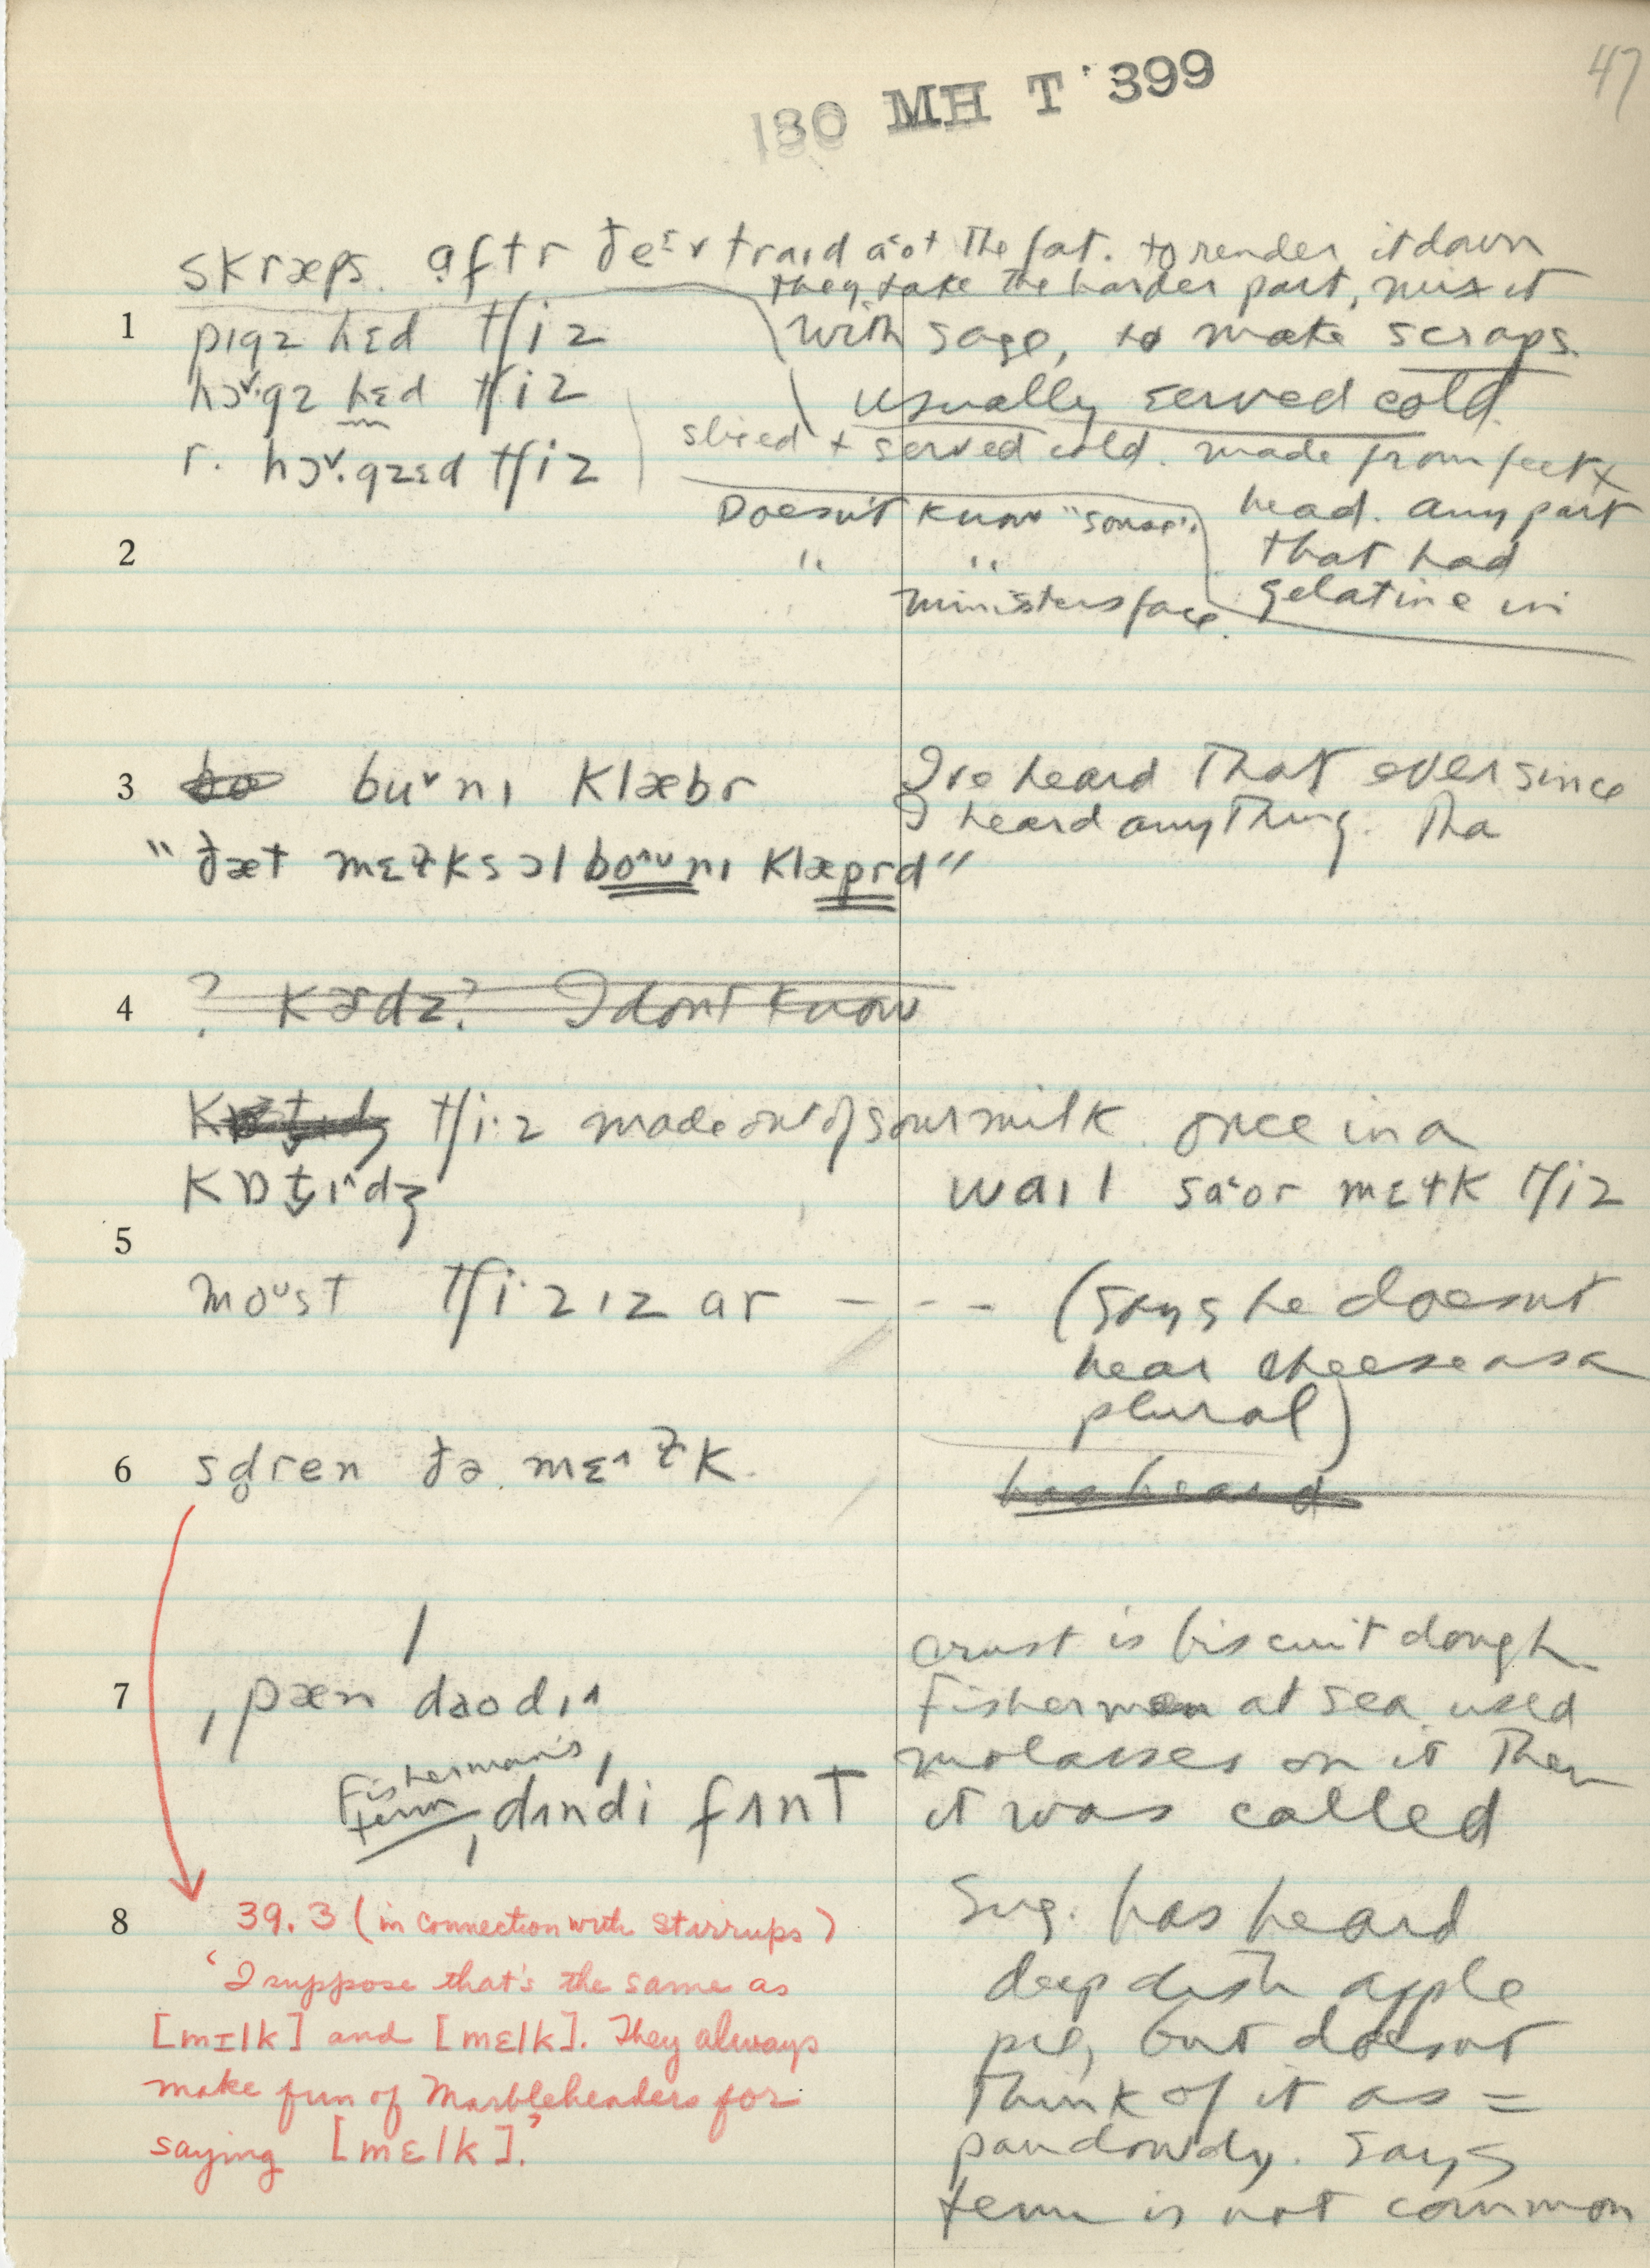 47
180 MH T 399
skræps. aftr ðeɪv traɪd aot the fat. to render it down
they take the harder part, mix it
1 pɪgz hɛd tʃiz with sage, to make scraps.
hɔˇ·gz hɛd tʃiz usually served cold.
sliced + served cold. made from feet +
r. hɔˇ·gzɛd tʃiz
Doesn't know "souse". head. any part
2 " " that had
ministers face. gelatine in
3 buˇnɪ klæbr I've heard that ever since
I heard anything. Tha
"ðæt mɛɫks ɔl boᶺᵘnɪ klæprd"
4 ? kɝdz? I dont know
tʃi·z made out of sour milk. once in a
kɒt̬ɪᶺdʒ waɪl saˑor mɛɫk tʃiz
5
moᵘst tʃi·zɪz ar - - - (says he doesnt
hear cheese as a
plural)
6 sdren ðə mɛᶺɫk.
has heard
crust is biscuit dough
7 ˌpæn daodɪᶺ Fishermen at sea used
molasses on it Then
Fisherman's
term ˌdɪndi fɪnt it was called
Sug. has heard
8 39.3 (in connection with stirrups)
deep dish apple
'I suppose that's the same as
pie, but doesnt
[mɪlk] and [mɛlk]. They always
think of it as =
make fun of Marbleheaders for
pandowdy. Says
saying [mɛlk].'
term is not common